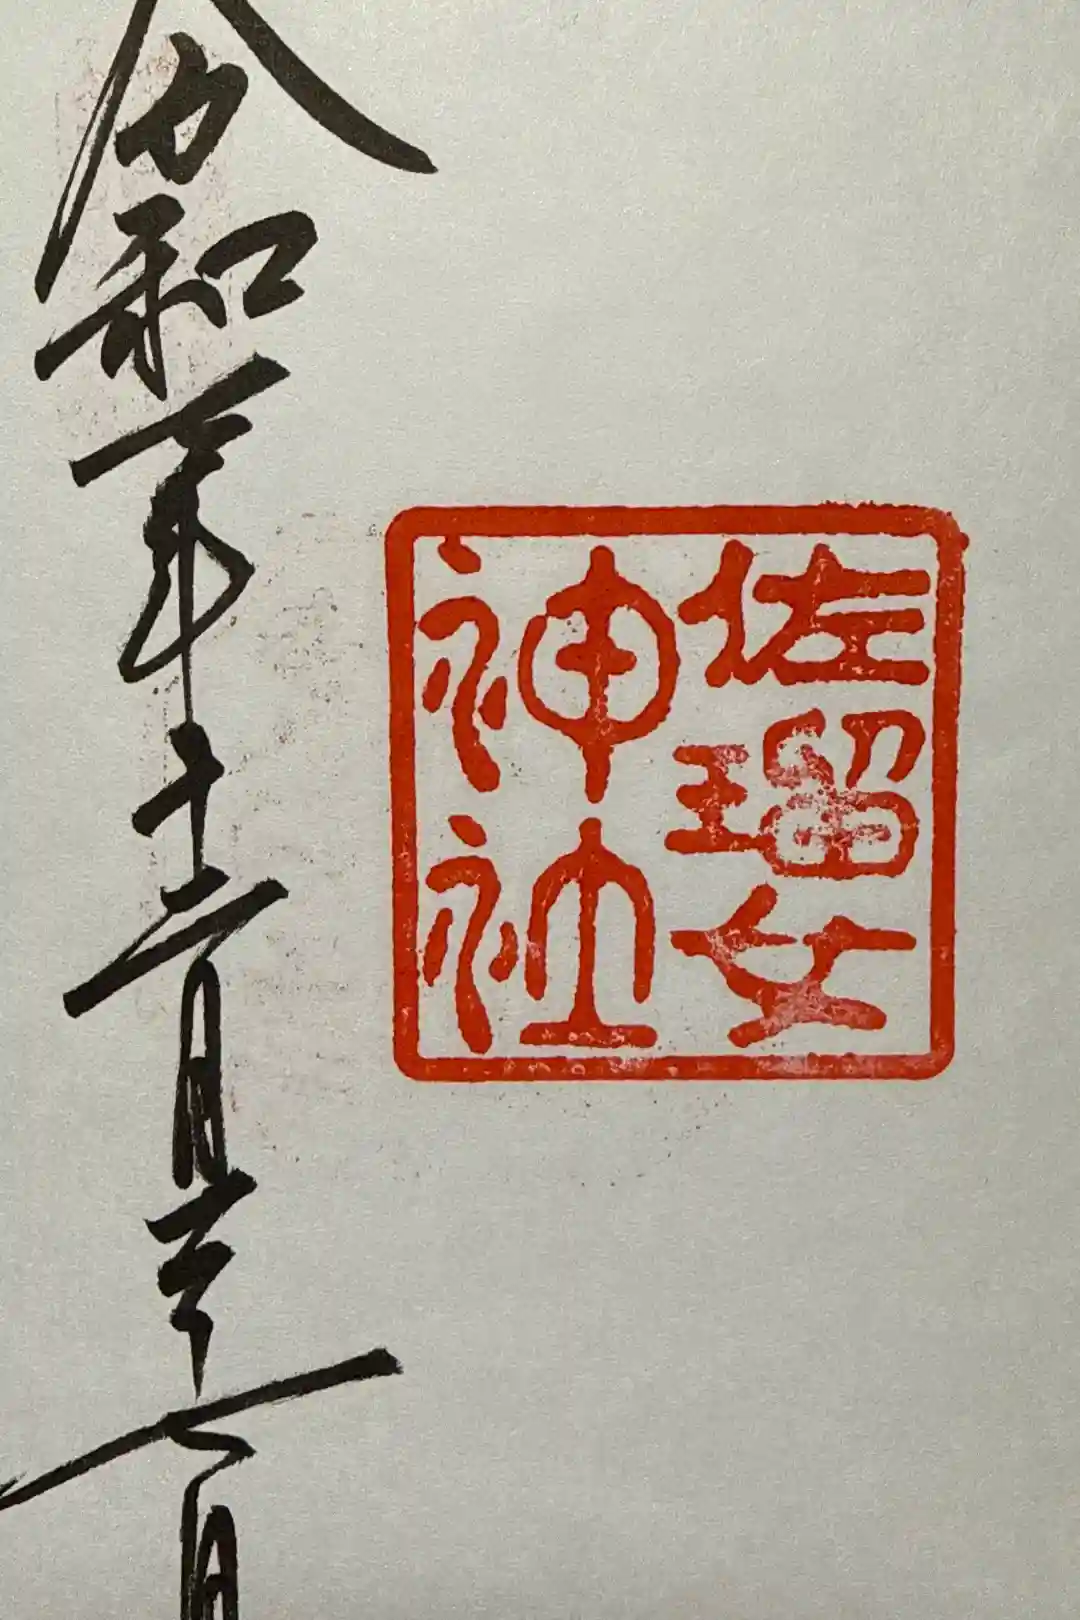 佐瑠女
神社
令和年十二月二十七日